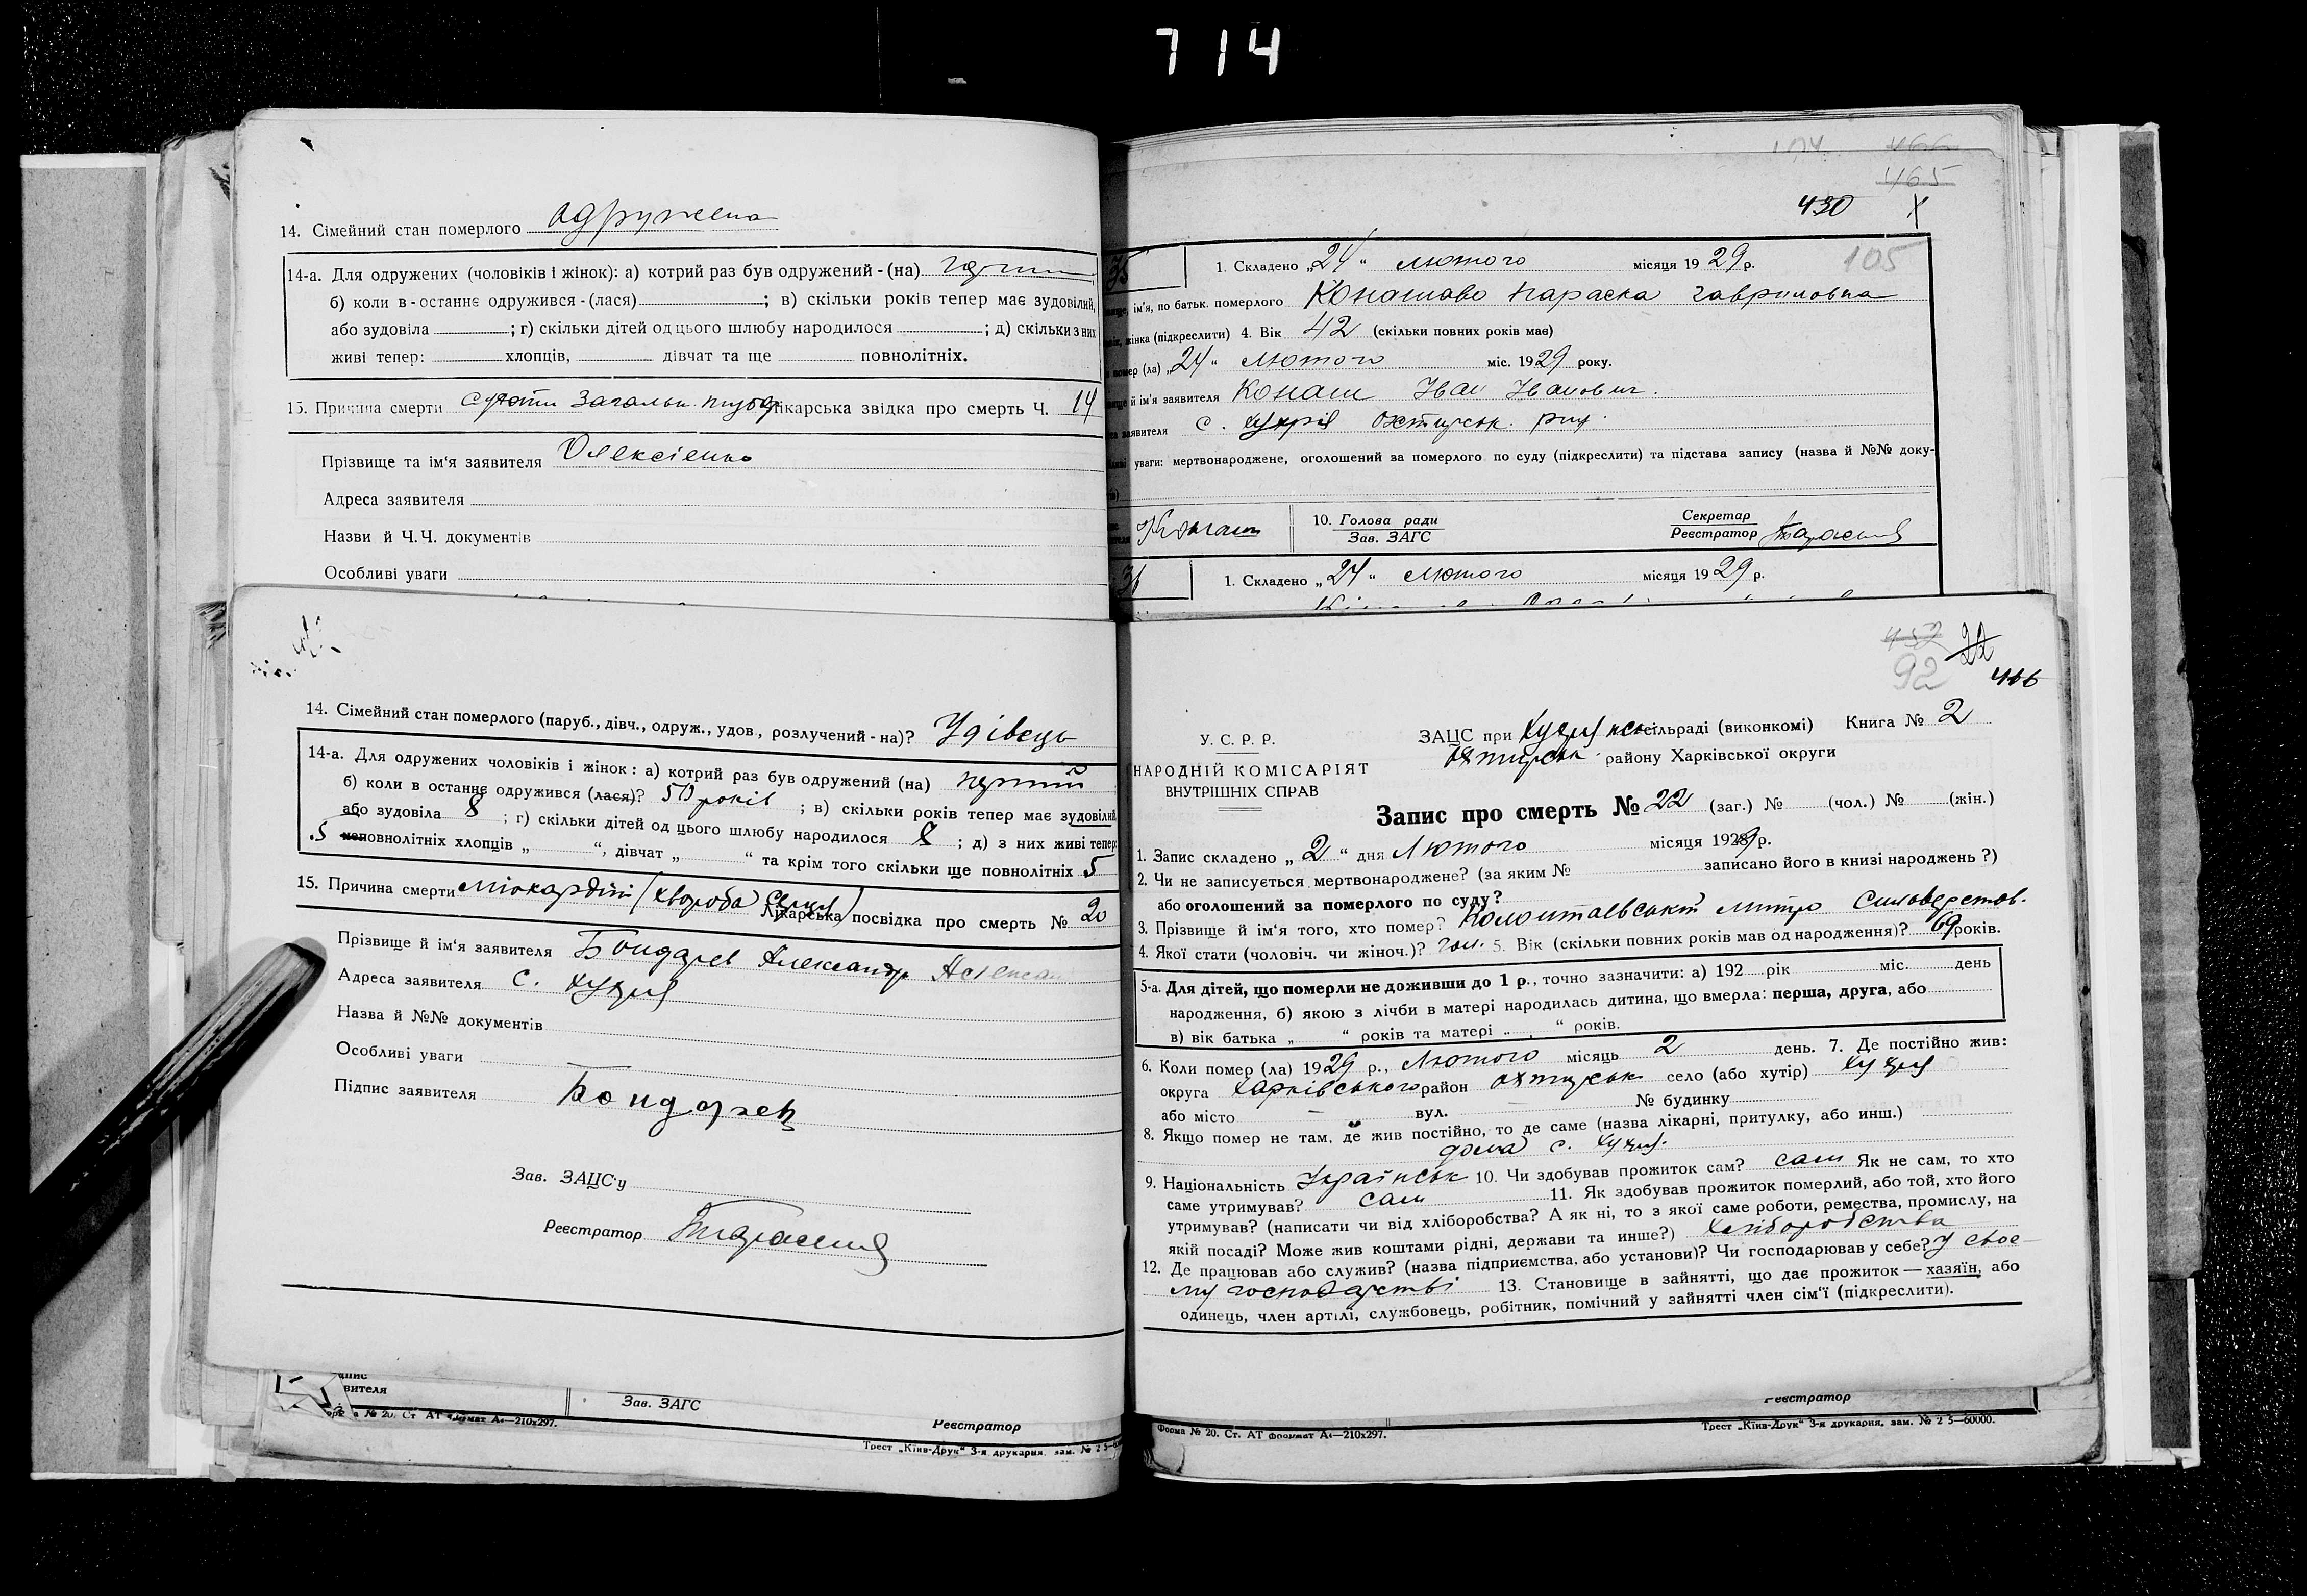 714
14. Сімейний стан померлого одружена
14-а. Для одружених (чоловіків і жінок): а) котрий раз був одружений-(на)
б) коли в-останнє одружився-(лася) ; в) скільки років тепер має зудовілий,
або зудовіла ; г) скільки дітей од цього шлюбу народилося ; д) скільки з них
живі тепер: хлопців, дівчат та ще повнолітніх.
15. Причина смерти лікарська звідка про смерть Ч. 14
Прізвище та ім'я заявителя Олексієнко
Адреса заявителя
Назви й Ч.Ч. документів
Особливі уваги
466
465
430
105
1. Складено „24“ лютого місяця 1929 р.
ім'я, по батьк. померлого Конашова Параска Гавриловна
жінка (підкреслити) 4. Вік 42 (скільки повних років має)
помер (ла) „24“ лютого міс. 1929 року.
й ім'я заявителя Конаш Іван Іванович.
заявителя с. Хухрія Охтирськ. рай.
уваги: мертвонароджене, оголошений за померлого по суду (підкреслити) та підстава запису (назва й №№ доку-
Конаш 10. Голова ради Секретар
Зав. ЗАГС Реєстратор
36 1. Складено „24“ лютого місяця 1929 р.
14. Сімейний стан померлого (паруб., дівч., одруж., удов., розлучений-на)? Удівець
14-а. Для одружених чоловіків і жінок: а) котрий раз був одружений (на) перший
б) коли в останнє одружився (лася)? 50 років ; в) скільки років тепер має зудовілий
або зудовіла 8 ; г) скільки дітей од цього шлюбу народилося 8 ; д) з них живі тепер:
5 неповнолітніх хлопців „ “, дівчат „ “ та крім того скільки ще повнолітніх 5
15. Причина смерти міокардіт (хвороба серця) Лікарська посвідка про смерть № 20
Прізвище й ім'я заявителя Бондарев Александр
Адреса заявителя с. Хухря
Назва й №№ документів
Особливі уваги
Підпис заявителя Бондарев
Зав. ЗАЦС'у
Реєстратор
92 22
466
У. С. Р. Р.
НАРОДНІЙ КОМІСАРІЯТ
ВНУТРІШНІХ СПРАВ
ЗАЦС при Хухрянськ сільраді (виконкомі) Книга № 2
Охтирськ. району Харківської округи
Запис про смерть № 22 (заг.) № (чол.) № (жін.)
1. Запис складено „2“ дня Лютого місяця 1929 р.
2. Чи не записується мертвонароджене? (за яким № записано його в книзі народжень?)
або оголошений за померлого по суду?
3. Прізвище й ім'я того, хто помер? Коломтаєвський Митро Сильверстов.
4. Якої стати (чоловіч. чи жіноч.)? чол. 5. Вік (скільки повних років мав од народження)? 69 років.
5-а. Для дітей, що померли не доживши до 1 р., точно зазначити: а) 192 рік міс. день
народження, б) якою з лічби в матері народилась дитина, що вмерла: перша, друга, або
в) вік батька „ “ років та матері „ “ років.
6. Коли помер (ла) 1929 р., Лютого місяць 2 день. 7. Де постійно жив:
округа Харківського район Охтирськ село (або хутір) Хухря
або місто — вул. — № будинку
8. Якщо помер не там, де жив постійно, то де саме (назва лікарні, притулку, або инш.)
дома с. Хухря.
9. Національність Українськ 10. Чи здобував прожиток сам? сам Як не сам, то хто
саме утримував? сам 11. Як здобував прожиток померлий, або той, хто його
утримував? (написати чи від хліборобства? А як ні, то з якої саме роботи, ремества, промислу, на
якій посаді? Може жив коштами рідні, держави та инше?) хліборобства
12. Де працював або служив? (назва підприємства, або установи)? Чи господарював у себе? У своє-
му господарстві 13. Становище в зайнятті, що дає прожиток — хазяїн, або
одинець, член артілі, службовець, робітник, помічний у зайнятті член сім'ї (підкреслити).
вителя
Зав. ЗАГС
Реєстратор
№ 20. Ст. АТ формат А4—210х297.
Трест „Київ-Друк“ 3-я друкарня, зам. № 2 5
Реєстратор
Форма № 20. Ст. АТ формат А4—210х297.
Трест „Київ-Друк“ 3-я друкарня, зам. № 2 5—60000.